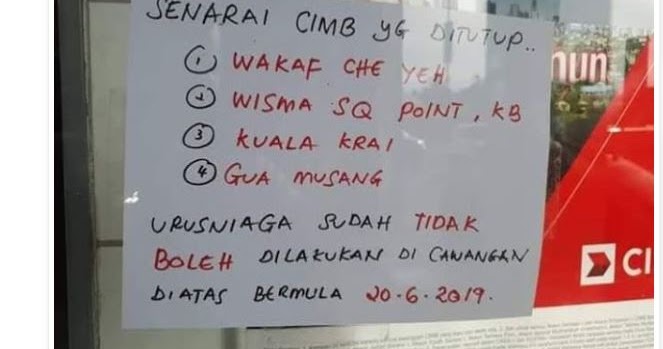 SENARAI CIMB YG DITUTUP..
① WAKAF CHE YEH
② WISMA SQ POINT, KB
③ KUALA KRAI
④ GUA MUSANG
URUSNIAGA SUDAH TIDAK
BOLEH DILAKUKAN DI CAWANGAN
DIATAS BERMULA 20-6-2019.
mun
CI